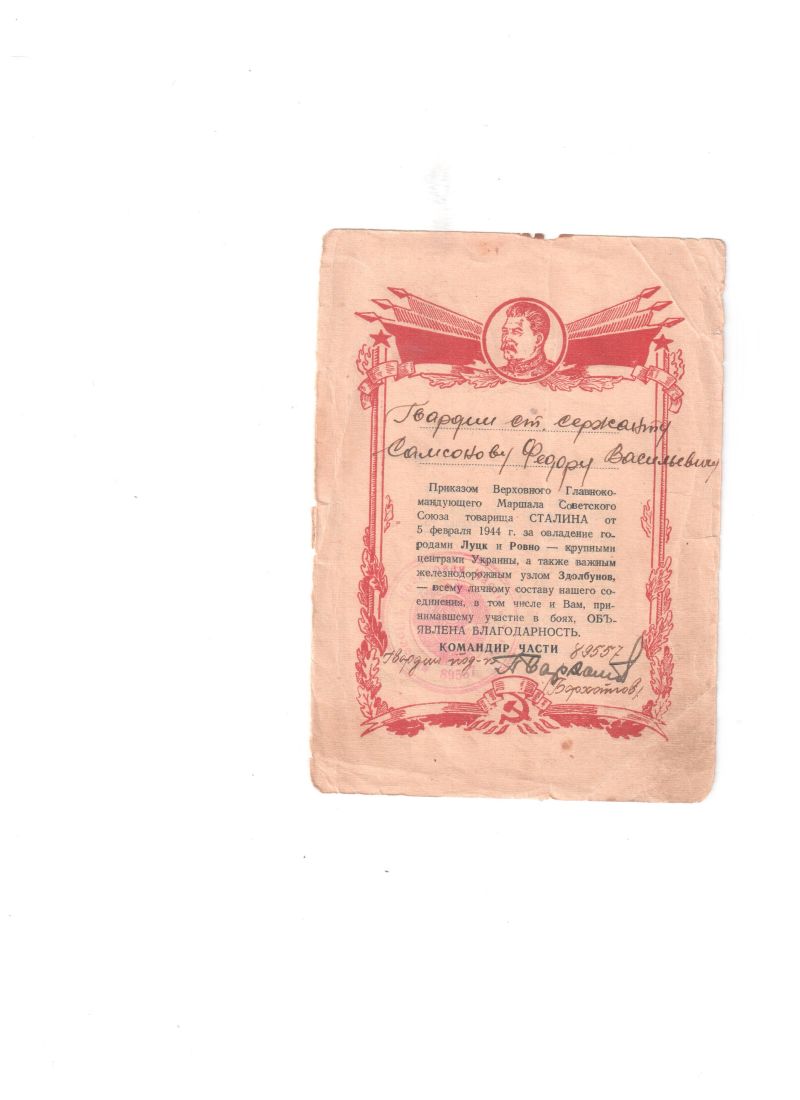 Гвардии ст. сержанту
Самсонову Федору Васильевичу
Приказом Верховного Главноко-
мандующего Маршала Советского
Союза товарища СТАЛИНА от
5 февраля 1944 г. за овладение го-
родами Луцк и Ровно — крупными
центрами Украины, а также важным
железнодорожным узлом Здолбунов,
— всему личному составу нашего со-
единения, в том числе и Вам, при-
нимавшему участие в боях, ОБЪ-
ЯВЛЕНА БЛАГОДАРНОСТЬ.
КОМАНДИР ЧАСТИ 89557
Гвардии под-к